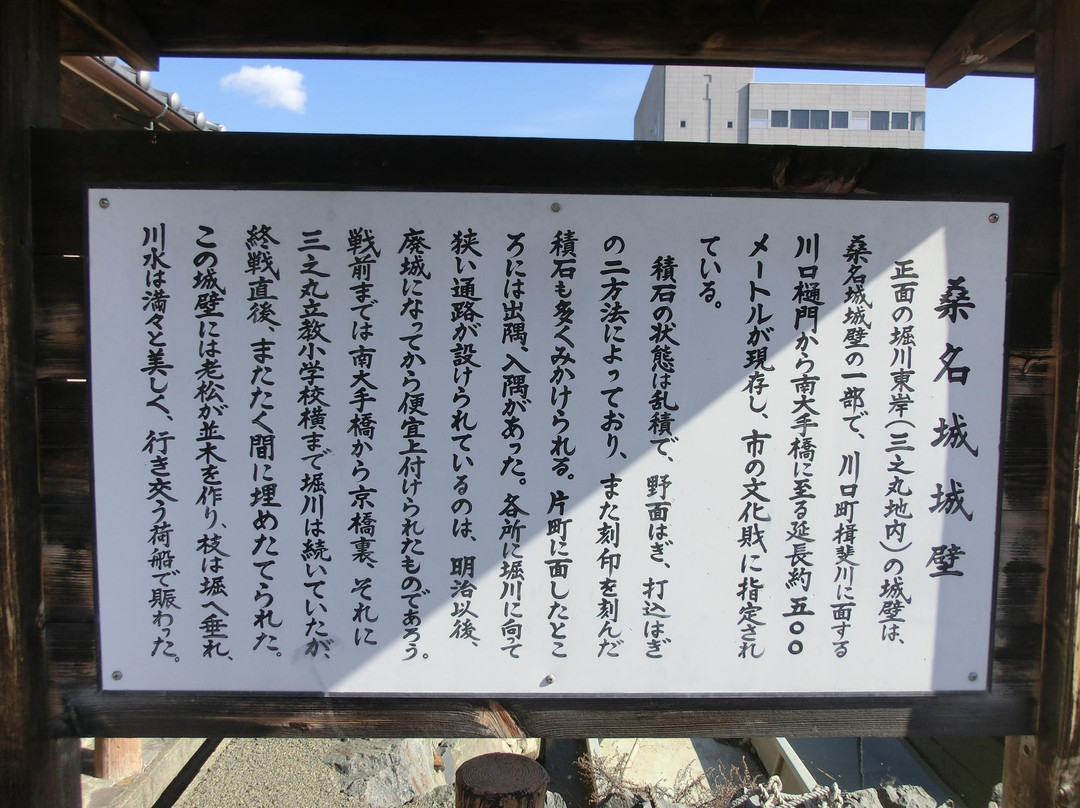 桑名城城壁
正面の堀川東岸（三之丸地内）の城壁は、
桑名城城壁の一部で、川口町揖斐川に面する
川口樋門から南大手橋に至る延長約五〇〇
メートルが現存し、市の文化財に指定され
ている。
積石の状態は乱積で、野面はぎ、打込はぎ
の二方法によっており、また刻印を刻んだ
積石も多くみかけられる。片町に面したとこ
ろには出隅、入隅があった。各所に堀川に向って
狭い通路が設けられているのは、明治以後、
廃城になってから便宜上付けられたものであろう。
戦前までは南大手橋から京橋裏、それに
三之丸立教小学校横まで堀川は続いていたが、
終戦直後、またたく間に埋めたてられた。
この城壁には老松が並木を作り、枝は堀へ垂れ、
川水は満々と美しく、行き交う荷船で賑わった。